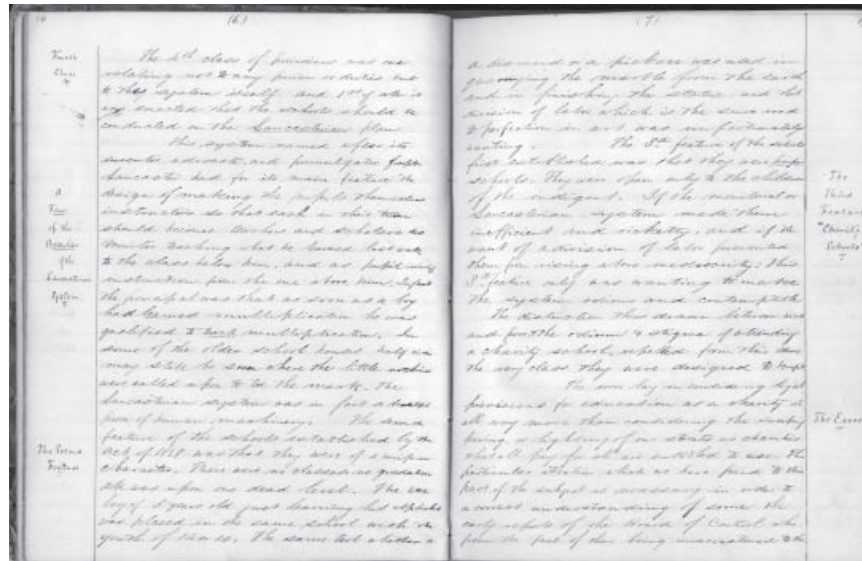 (6)
Fourth
Class
The 4th class of provisions was one
relating not to any person or duties but
to the system itself and 1st of all it
was enacted that the schools should be
conducted on the Lancasterian plan
This system named after its
advocate and promulgator
Lancaster had for its main feature the
design of making the pupils themselves
instructors so that each in their turn
should become teachers and scholars as
Monitor teaching what he learned
to the class below him, and as pupil
instruction from the one above him. In fact
the principal was that as soon as a boy
had learned multiplication he was
qualified to teach multiplication. In
some of the older school houses
may still be seen where the little
were called upon to toe the mark. The
Lancasterian system was in fact a
piece of human machinery. The second
feature of the schools established by the
Act of 1818 was that they were of a uniform
character. There were no classes or gradation
all was upon one dead level. The
boy of 5 years old just learning his alphabet
was placed in the same school with the
youth of 14 or 15. The same
A
View
of the
Results
of the
Lancasterian
System
The Second
Feature
(7)
a diamond or a pickaxe was used in
quarrying the marble from the earth
and in finishing the statue and that
division of labor which is the
to perfection in art was unfortunately
wanting. The 3rd feature of the schools
first established was that they were
schools. They were open only to the children
of the indigent. If the monitorial or
Lancasterian system made them
inefficient and rickety, and if the
want of a division of labor prevented
them from rising above mediocrity: this
3rd feature only was wanting to make
the system odious and contemptible
The distinction thus drawn between
and poor the odium & stigma of attending
a charity school, repelled from their doors
the very class they were designed to
The error lay in considering
provisions for education as a charity at
all any more than considering the
or lighting of our streets as charities
what all pay for all are entitled to use. The
particular attention which we have paid to this
part of the subject is necessary in order to
a correct understanding of some the
early reports of the Board of Control who
from the fact of their being unaccustomed to the
The
Third
Feature
"Charity
Schools"
The Error